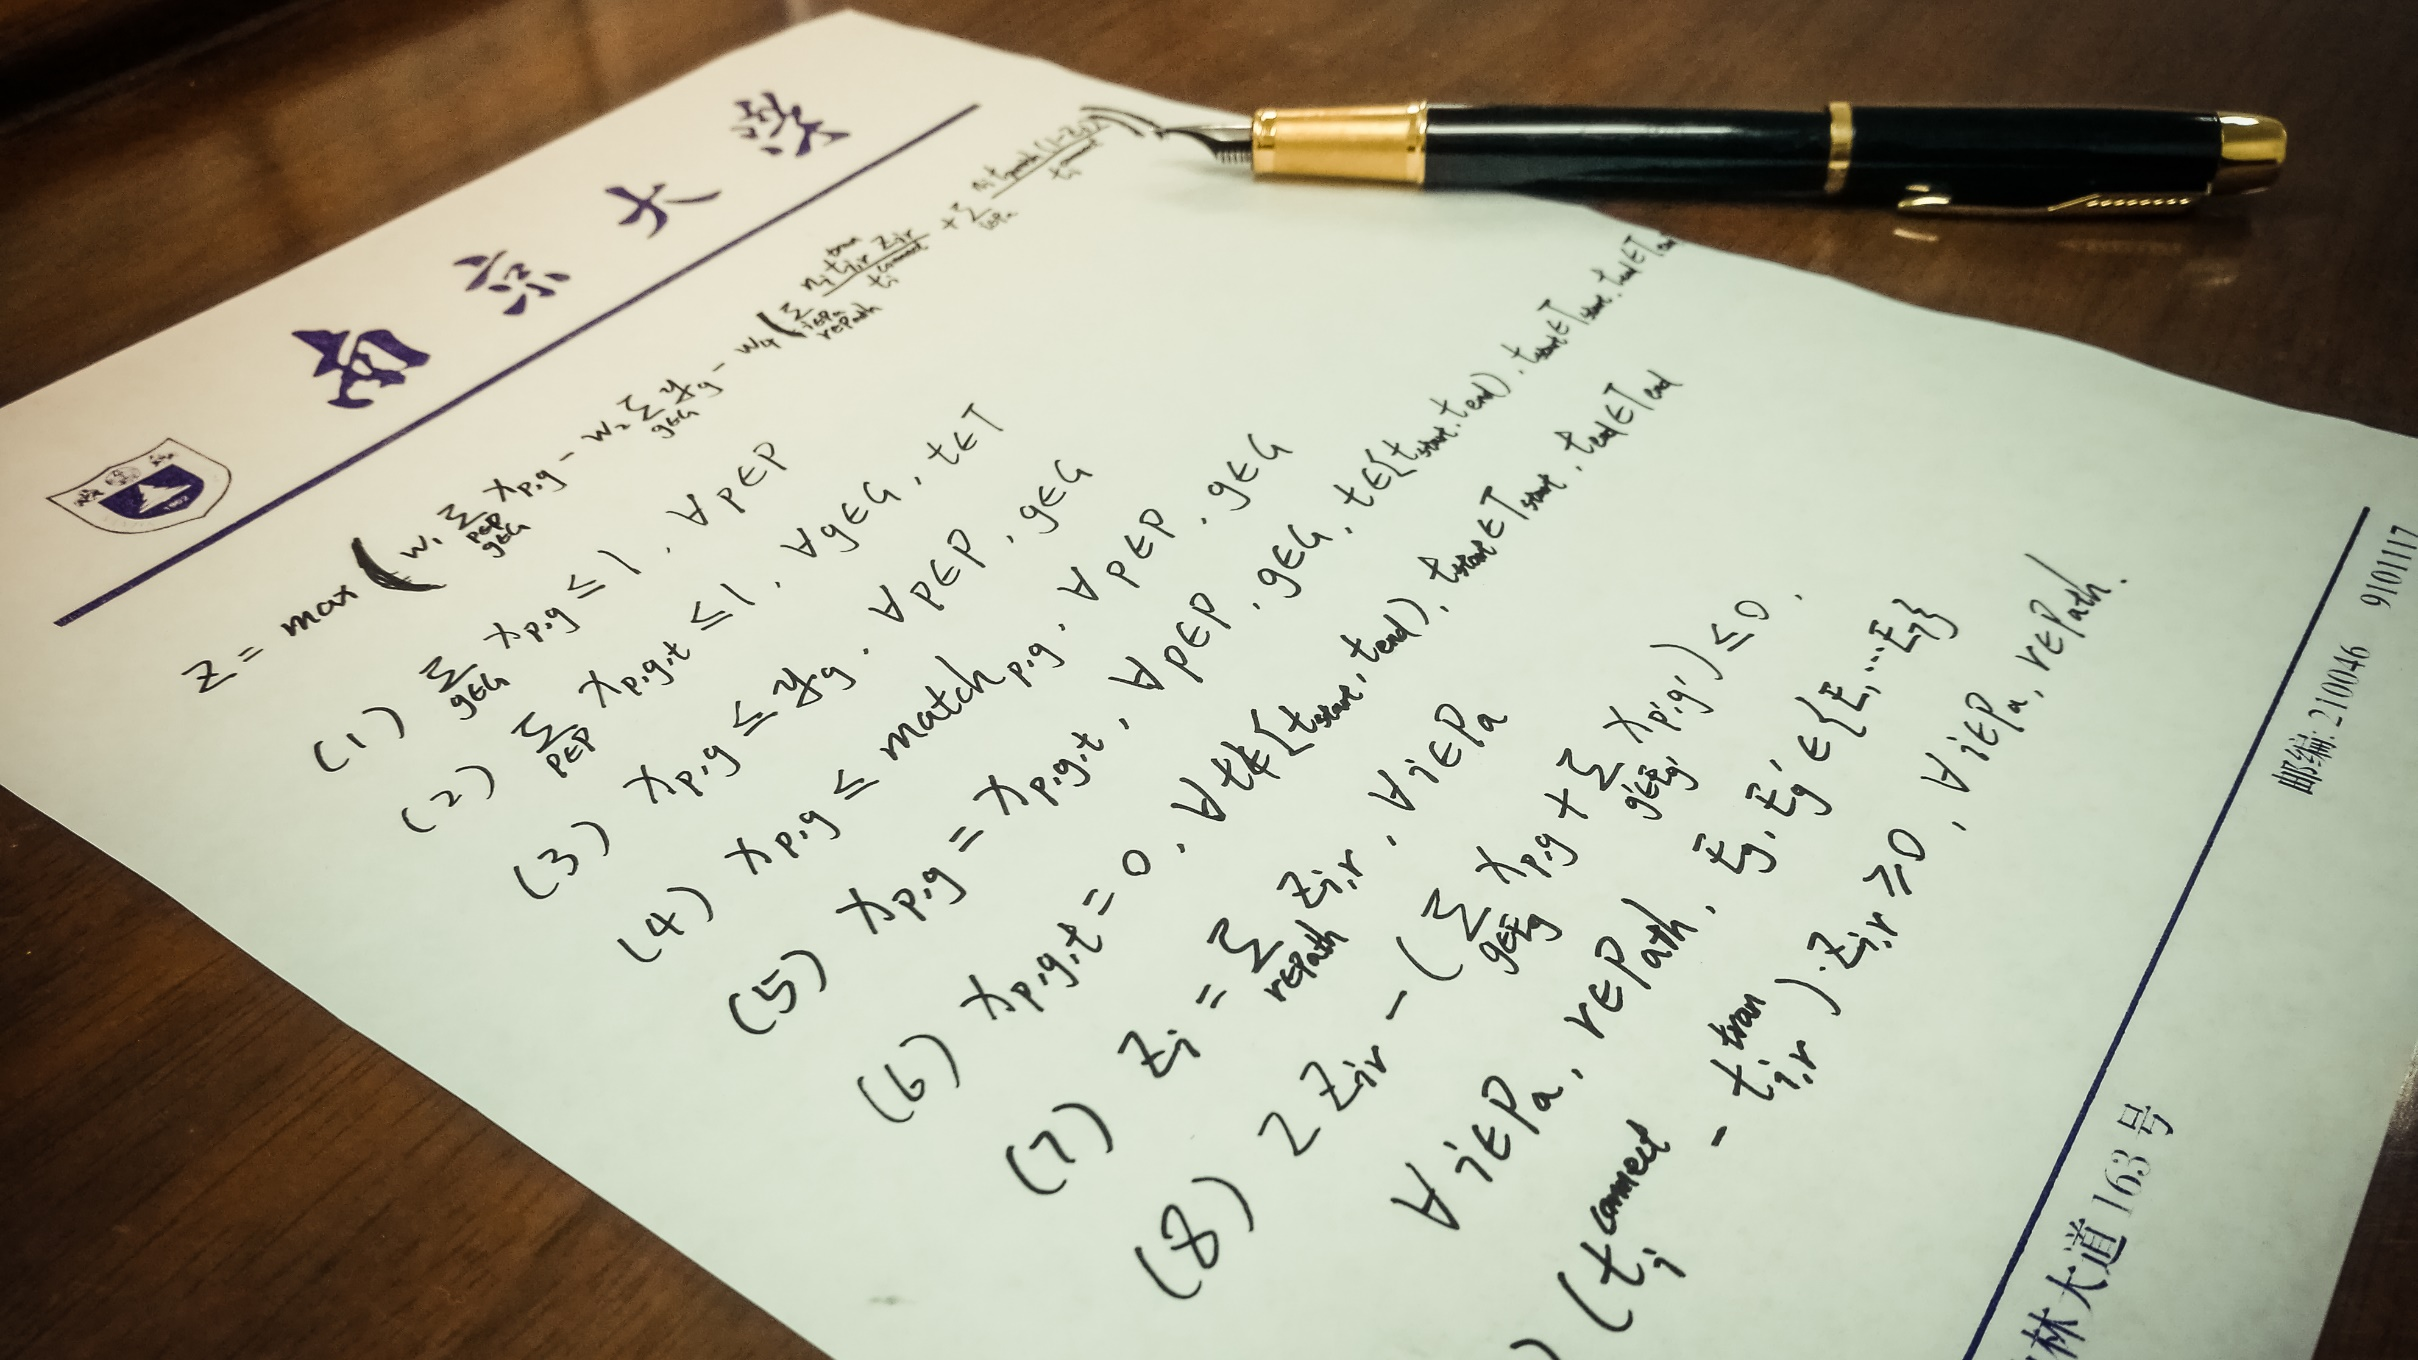 南京大学
Z = max ( w₁ ∑_{p∈P, g∈G} x_{p,g} − w₂ ∑_{g∈G} y_g − w₄ ( ∑_{i∈Pa, r∈Path} n_i t_{i,r}^{tran} z_{i,r} / t_i^{connect} + ∑_{i∈Pa}
(1) ∑_{g∈G} x_{p,g} ≤ 1, ∀p∈P
(2) ∑_{p∈P} x_{p,g,t} ≤ 1, ∀g∈G, t∈T
(3) x_{p,g} ≤ y_g, ∀p∈P, g∈G
(4) x_{p,g} ≤ match_{p,g}, ∀p∈P, g∈G
(5) x_{p,g} = x_{p,g,t}, ∀p∈P, g∈G, t∈[t_{start}, t_{end}), t_{start}∈T_{start}, t_{end}∈T
(6) x_{p,g,t} = 0, ∀t∉[t_{start}, t_{end}), t_{start}∈T_{start}, t_{end}∈T_{end}
(7) Z_i = ∑_{r∈Path} Z_{i,r}, ∀i∈Pa
(8) 2Z_{ir} − (∑_{g∈E_g} x_{p,g} + ∑_{g'∈E_{g'}} x_{p',g'}) ≤ 0,
∀i∈Pa, r∈Path, E_g, E_g'∈{E_1,…E_7}
) (t_i^{connect} − t_{i,r}^{tran})·Z_{i,r} ≥ 0, ∀i∈Pa, r∈Path.
林大道163号 邮编: 210046 9101117